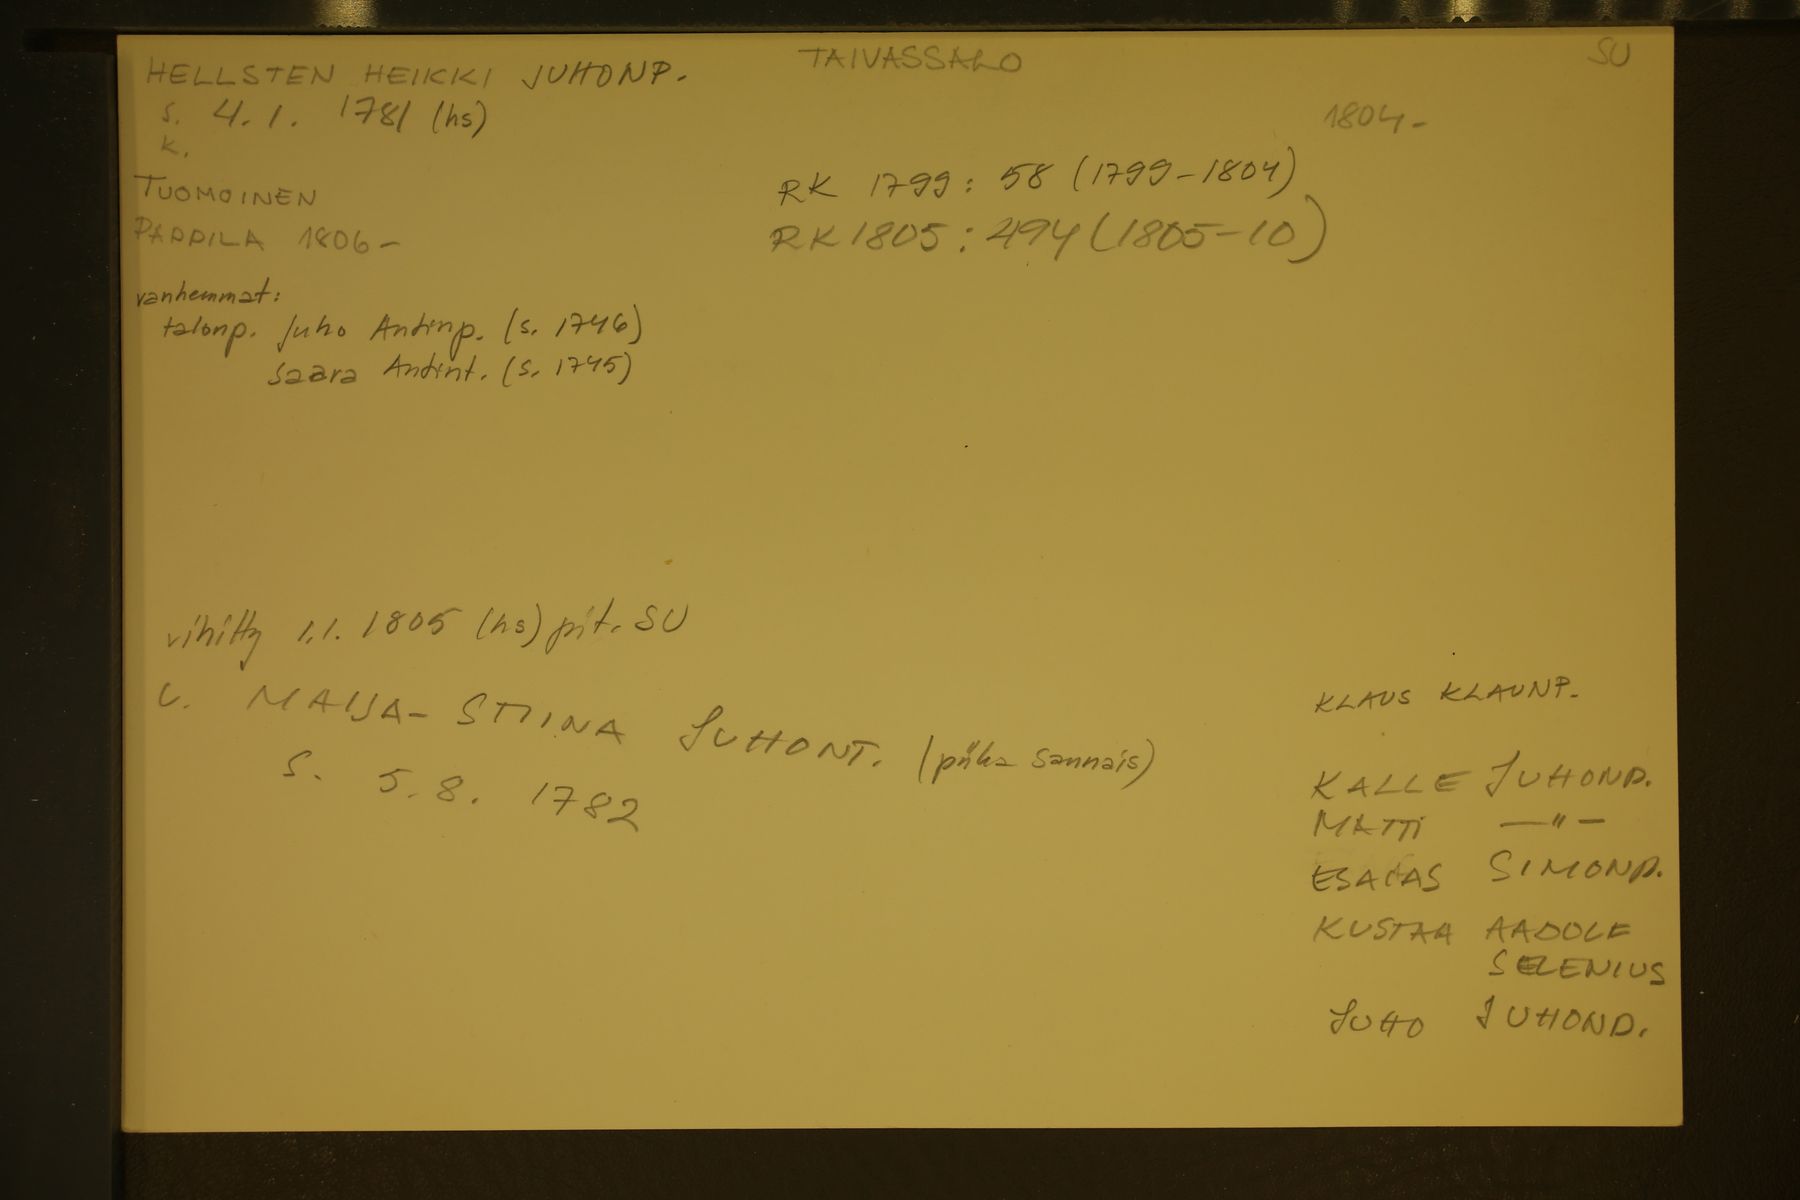 HELLSTEN HEIKKI JUHONP.
TAIVASSALO
SU
s. 4.1. 1781 (hs)
k.
1804-
TUOMOINEN
PAPPILA 1806-
RK 1799: 58 (1799-1804)
RK 1805: 494 (1805-10)
vanhemmat:
talonp. Juho Antinp. (s. 1746)
Saara Antint. (s. 1745)
vihitty 1.1. 1805 (hs) pit. SU
v. MAIJA-STIINA JUHONT. (piika Sannais)
s. 5.8. 1782
KLAUS KLAUNP.
KALLE JUHONP.
MATTI —"—
ESAIAS SIMONP.
KUSTAA AADOLF
SELENIUS
JUHO JUHONP.